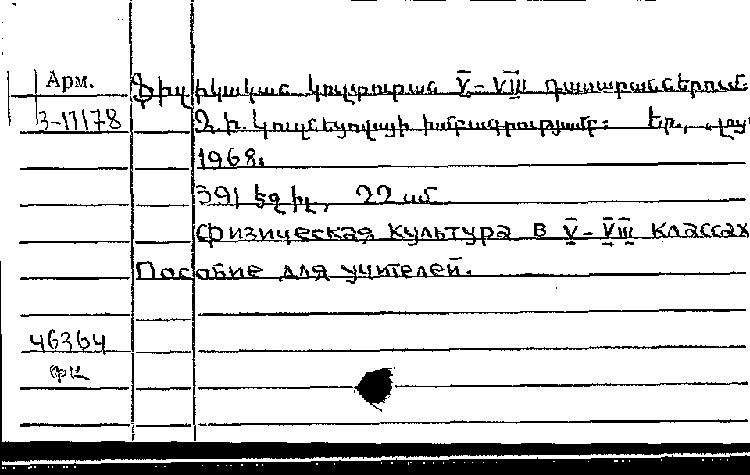 Арм.
Ֆիզիկական կուլտուրան V-VIII դասարաններում
3-П178
Զ. Ի. Կուզնեցովայի խմբագրությամբ: Եր., „Լույ
1968:
391 եջ իլ., 22 սմ
Физическая культура в V-VIII классах
Пособие для учителей.
46364